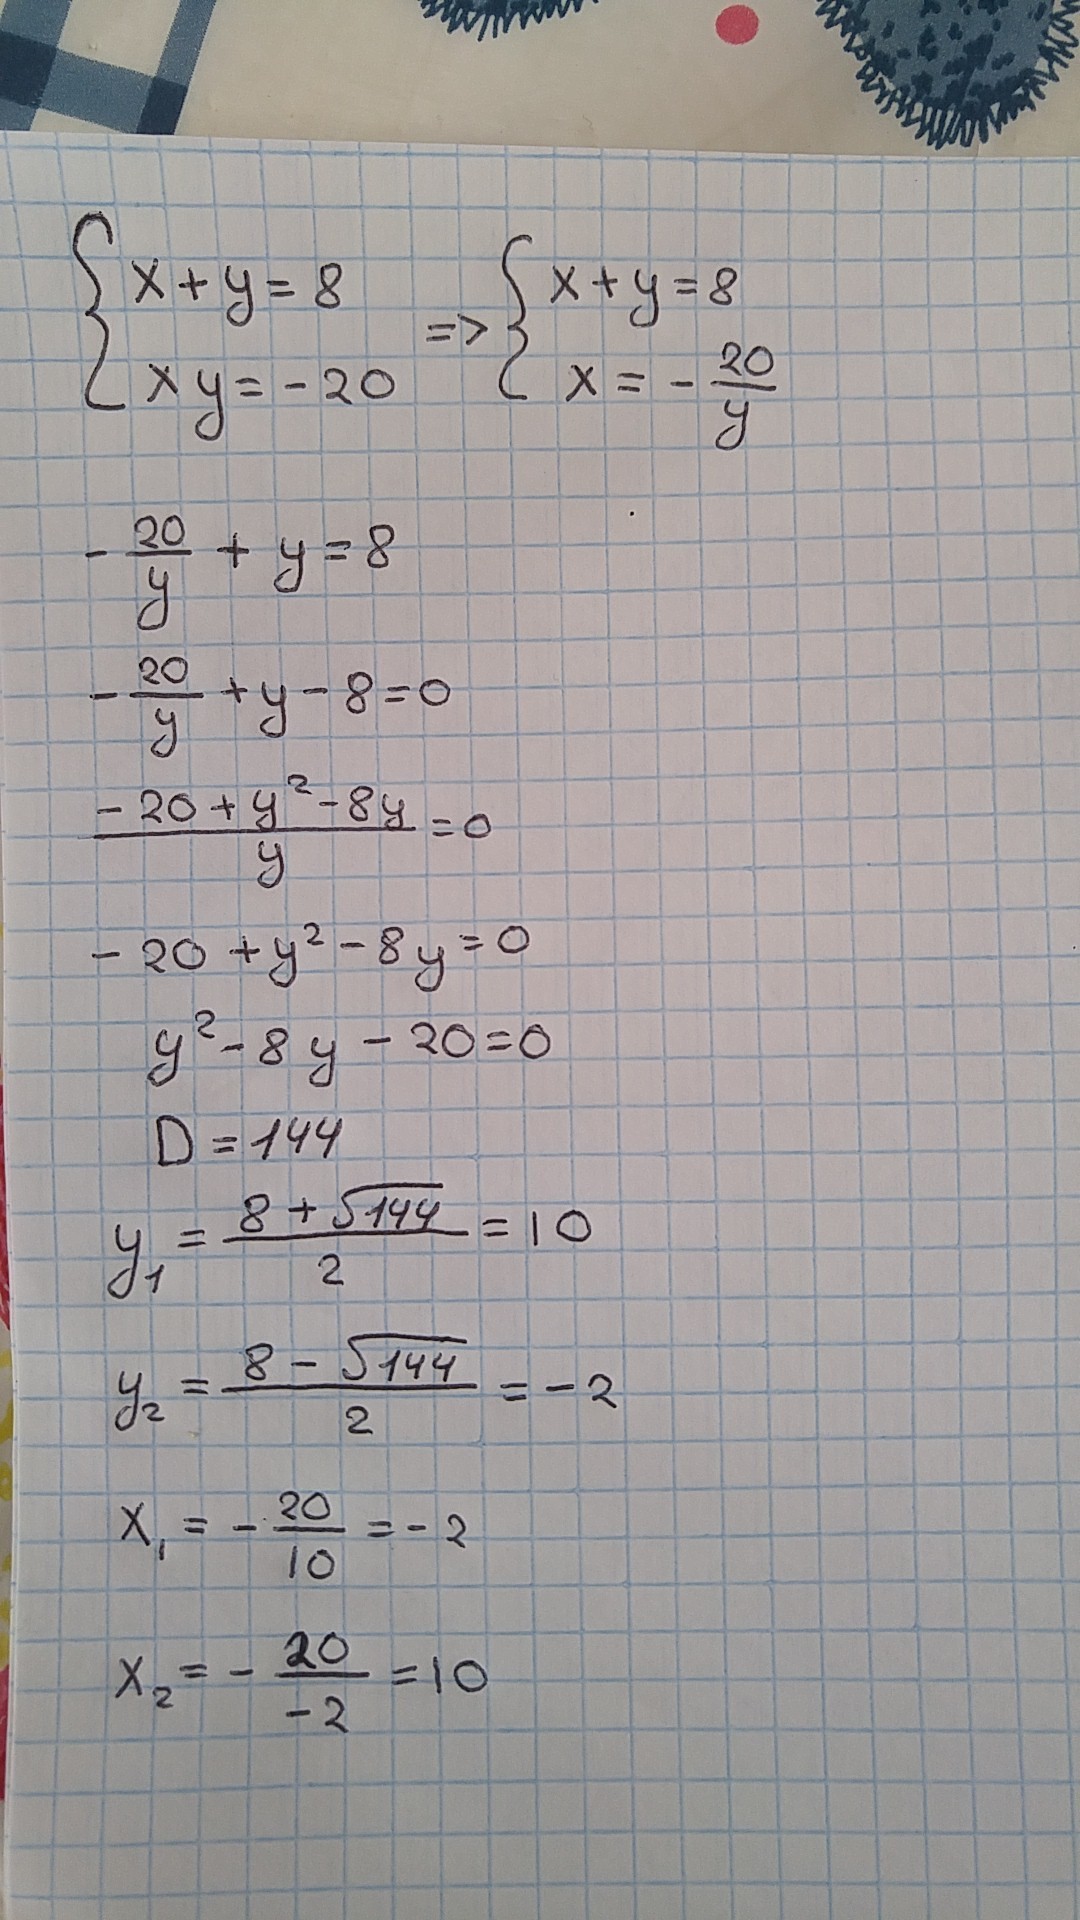 { x + y = 8 => { x + y = 8
{ xy = -20 { x = - 20/y
- 20/y + y = 8
- 20/y + y - 8 = 0
(-20 + y² - 8y)/y = 0
- 20 + y² - 8y = 0
y² - 8y - 20 = 0
D = 144
y₁ = (8 + √144)/2 = 10
y₂ = (8 - √144)/2 = -2
x₁ = - 20/10 = -2
x₂ = - 20/-2 = 10